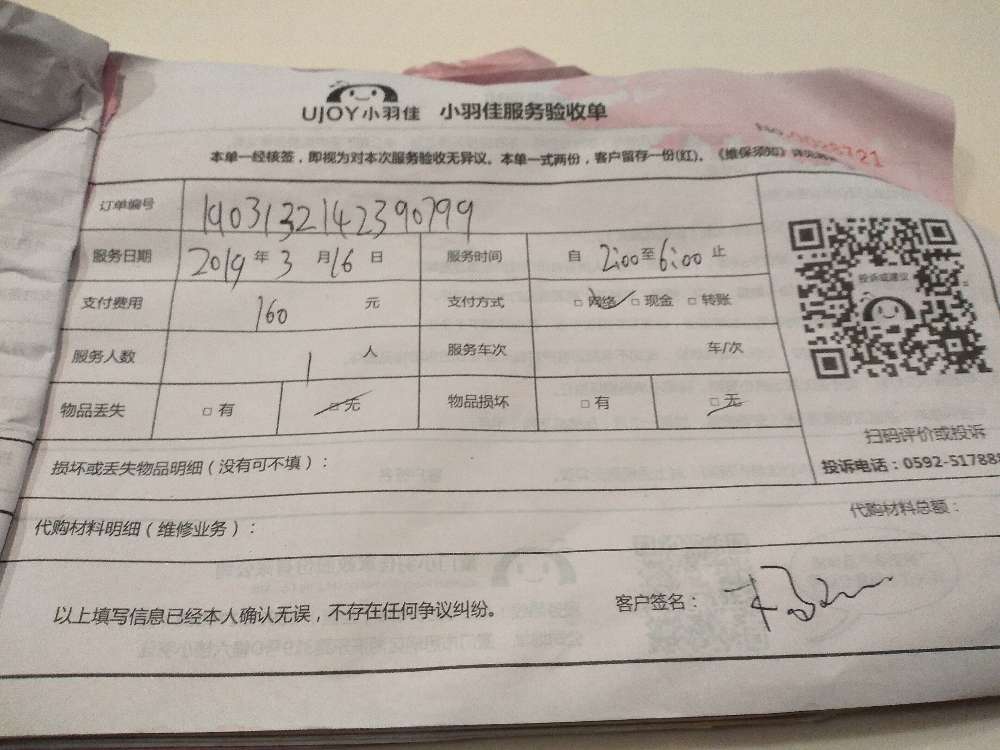 UJOY小羽佳 小羽佳服务验收单
No. 0028721
本单一经核签，即视为对本次服务验收无异议。本单一式两份，客户留存一份(红)。《维保须知》详见
订单编号 1903132142390799
服务日期 2019年3月16日 服务时间 自2:00至6:00止
支付费用 160元 支付方式 □网络 □现金 □转账
服务人数 1人 服务车次 车/次
物品丢失 □有 □无 物品损坏 □有 □无
投诉或建议
扫码评价或投诉
损坏或丢失物品明细（没有可不填）： 投诉电话：0592-517888
代购材料明细（维修业务）： 代购材料总额：
以上填写信息已经本人确认无误，不存在任何争议纠纷。 客户签名：